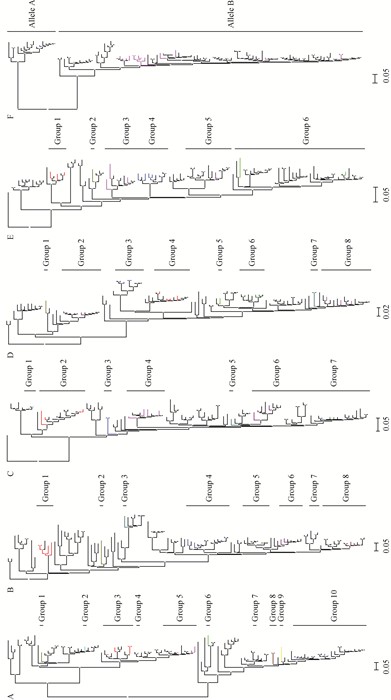 A
Group 1
Group 2
Group 3
Group 4
Group 5
Group 6
Group 7
Group 8
Group 9
Group 10
0.05
B
Group 1
Group 2
Group 3
Group 4
Group 5
Group 6
Group 7
Group 8
0.05
C
Group 1
Group 2
Group 3
Group 4
Group 5
Group 6
Group 7
0.05
D
Group 1
Group 2
Group 3
Group 4
Group 5
Group 6
Group 7
Group 8
0.02
E
Group 1
Group 2
Group 3
Group 4
Group 5
Group 6
0.05
F
Allele A
Allele B
0.05